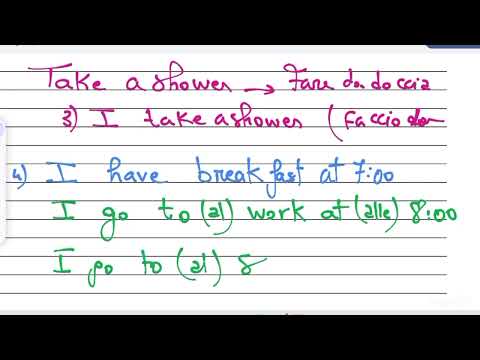 Take a shower → Fare la doccia
3) I take a shower (faccio la
4) I have breakfast at 7:00
I go to (al) work at (alle) 8:00
I go to (al) s